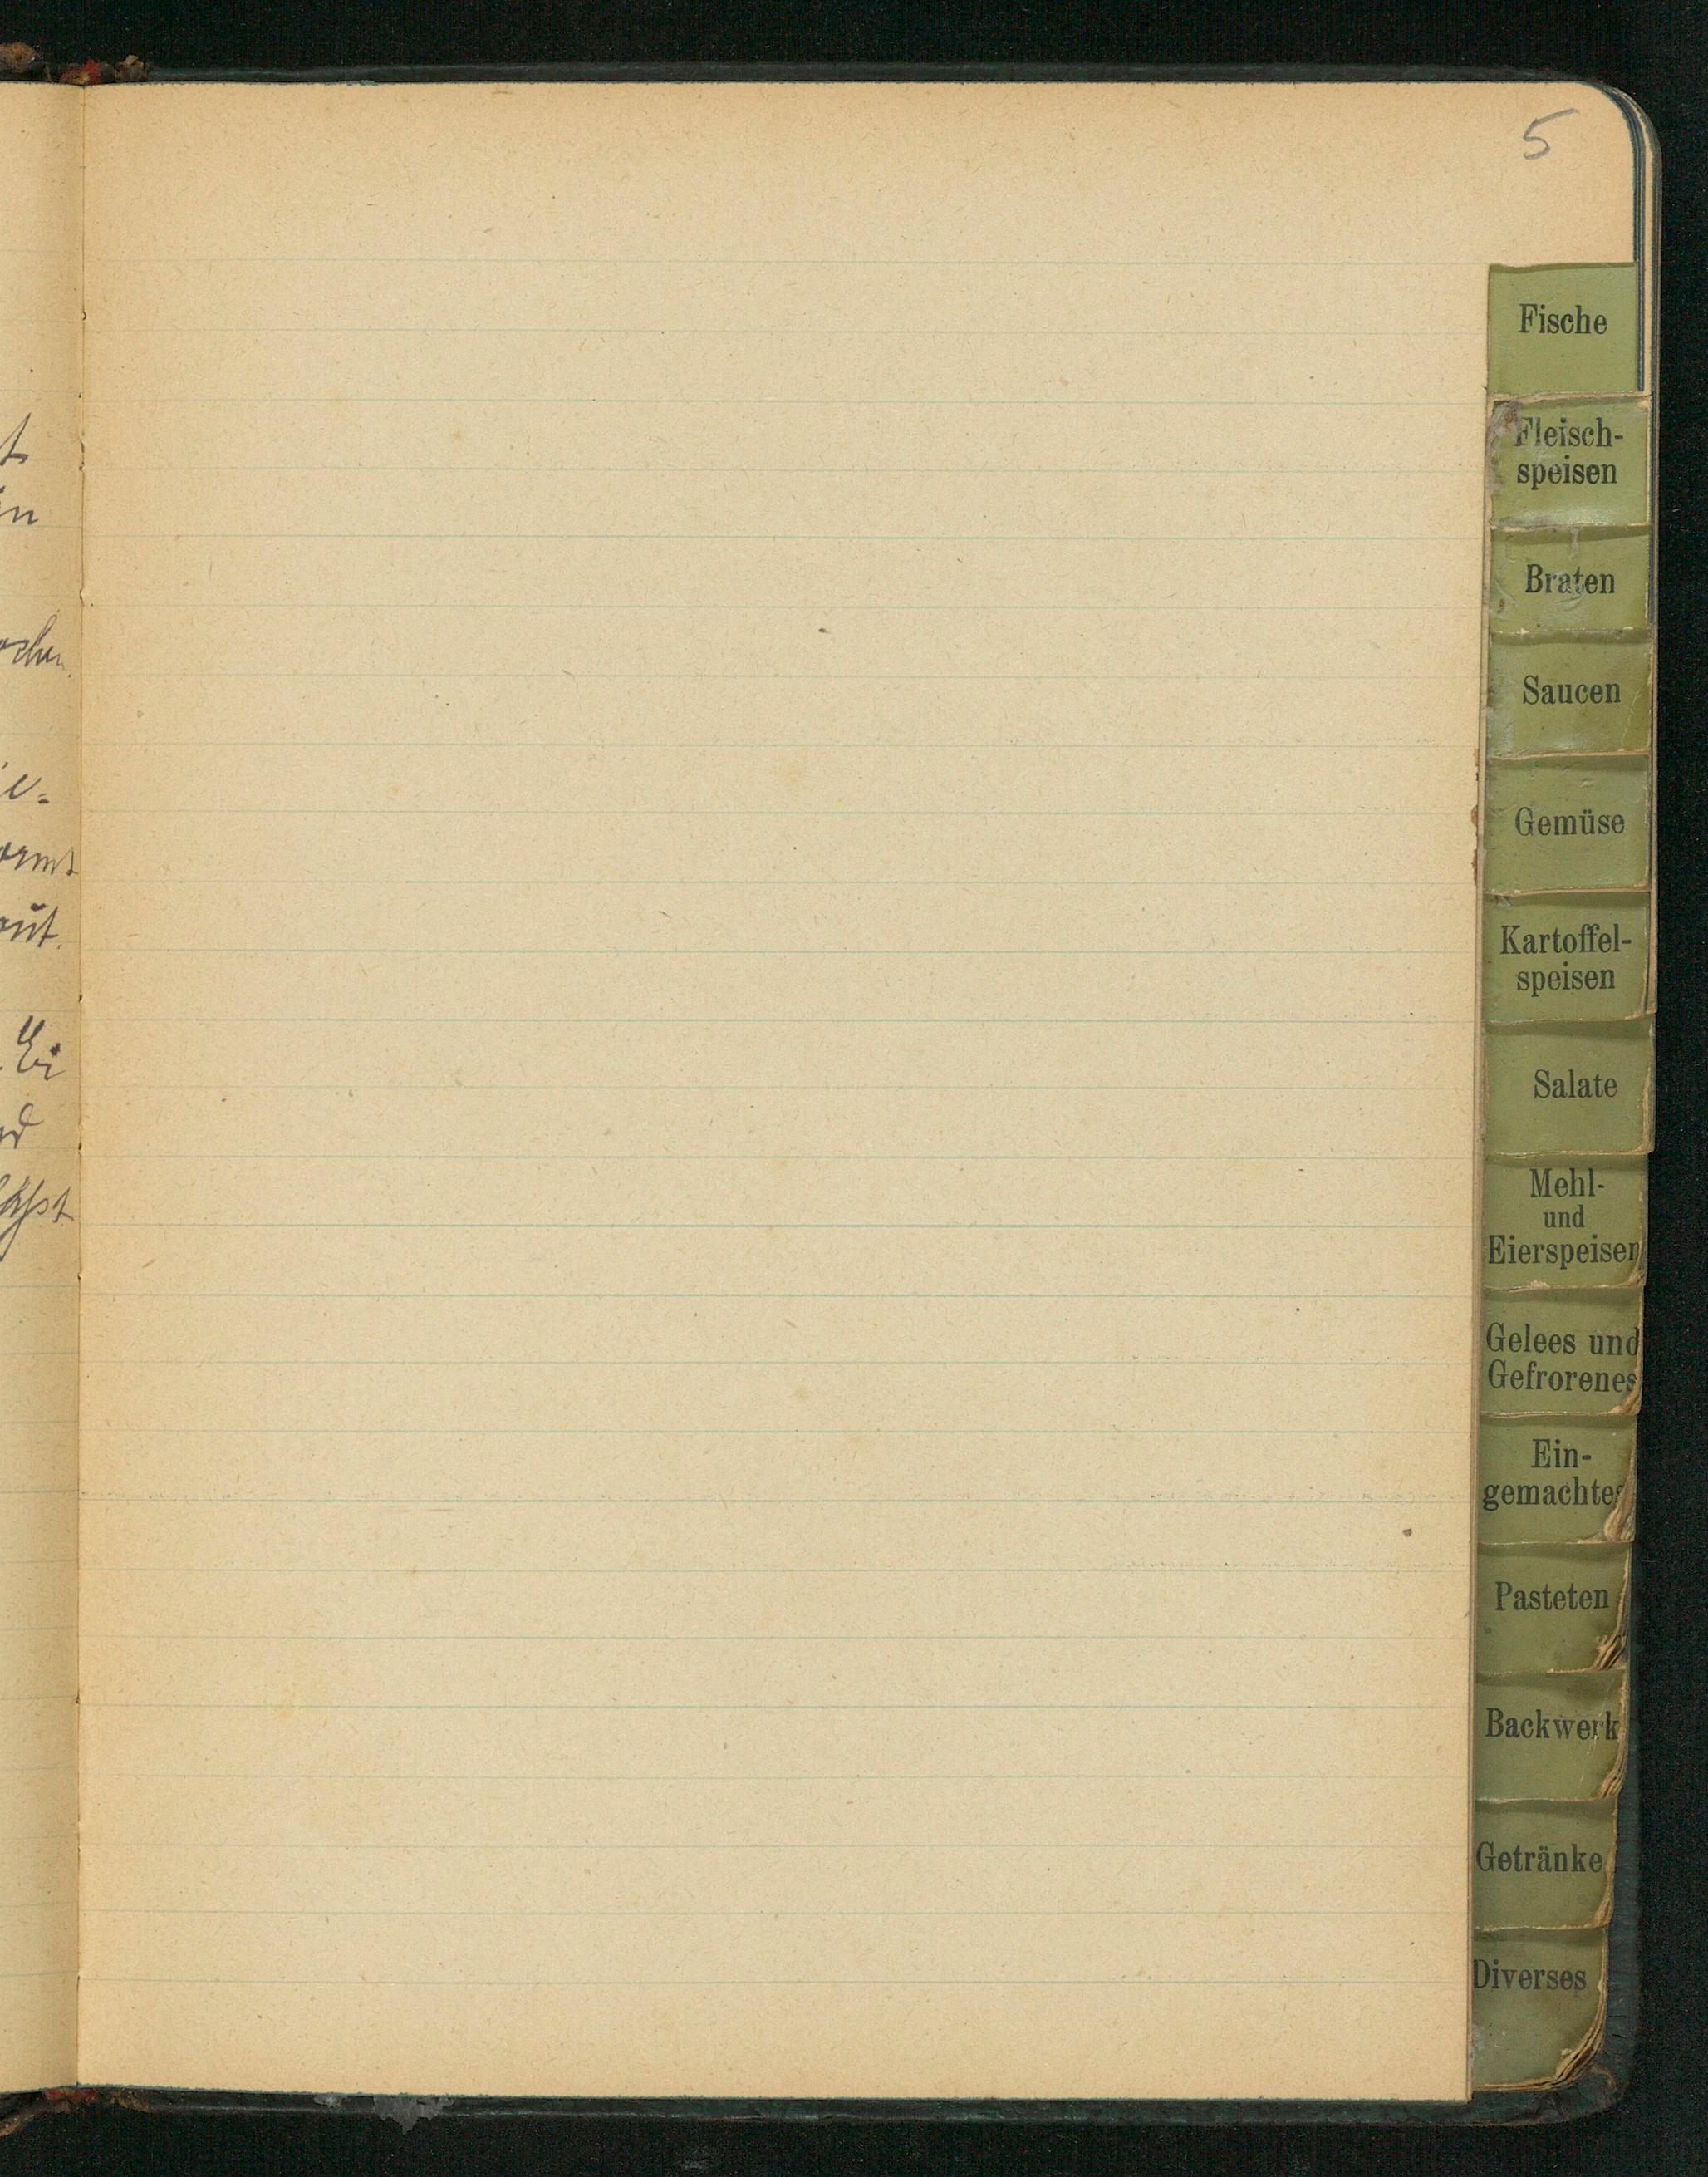 5
t
in
ie-
aut.
Ei
Fische
Fleisch-
speisen
Braten
Saucen
Gemüse
Kartoffel-
speisen
Salate
Mehl-
und
Eierspeisen
Gelees und
Gefrorenes
Ein-
gemachtes
Pasteten
Backwerk
Getränke
Diverses